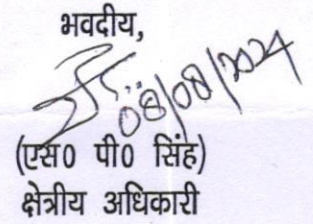 भवदीय,
08/08/2024
(एस0 पी0 सिंह)
क्षेत्रीय अधिकारी